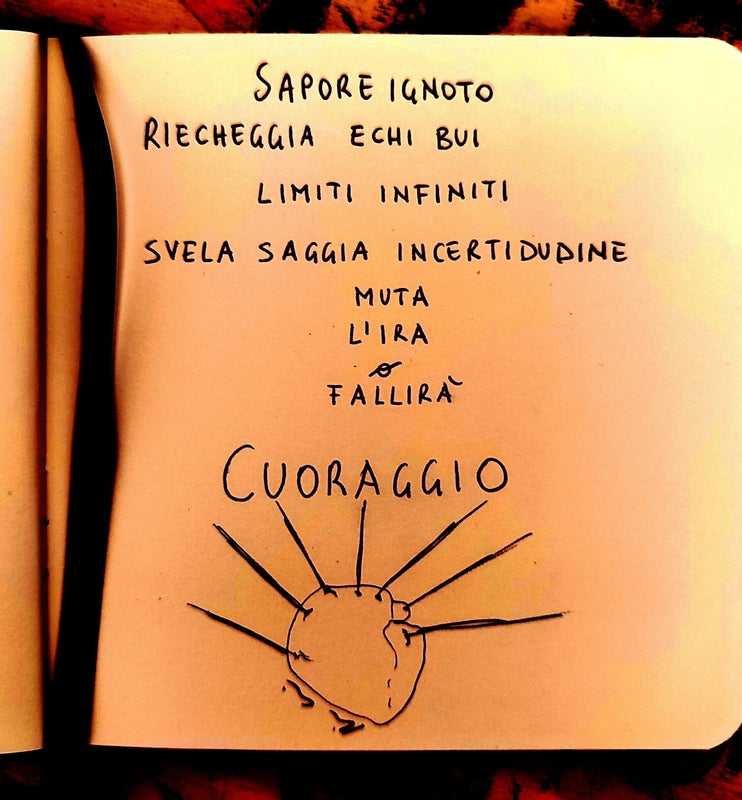 SAPORE IGNOTO
RIECHEGGIA ECHI BUI
LIMITI INFINITI
SVELA SAGGIA INCERTIDUDINE
MUTA
L'IRA
O
FALLIRÀ
CUORAGGIO